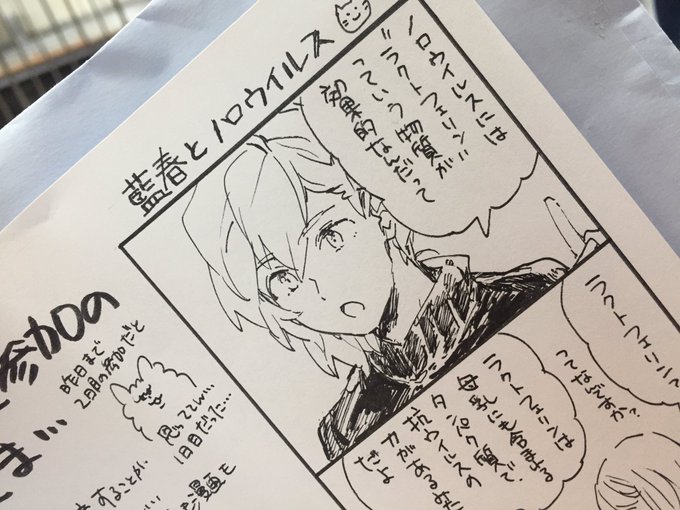 藍春とノロウイルス
ノロウイルスには
"ラクトフェリン"
っていう物質が
効果的なんだって
ラクトフェリン？
ラクトフェリンは
母乳にも含まれる
タンパク質で、
抗ウイルスの
力がある
だよ
参加の
昨日まで
2日目の参加だと
思っててしん…
1日目だった…
ま…
することが
漫画も